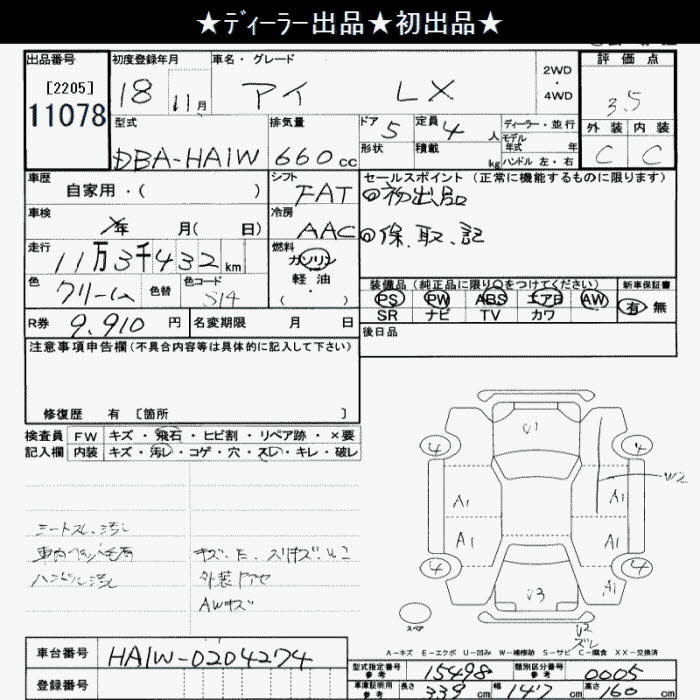 ★ディーラー出品★初出品★
出品番号 [2205] 11078
初度登録年月 18 11月
車名・グレード アイ LX
2WD・4WD
評価点 3.5
外装 C 内装 C
型式 DBA-HA1W
排気量 660cc
ドア 5 定員 4人
形状 積載 kg
ディーラー・並行
モデル年式 年
ハンドル 左・右
車歴 自家用・( )
シフト FAT
セールスポイント(正常に機能するものに限ります)
◎初出品
◎保、取、記
車検 年 月( 日)
冷房 AAC
走行 11万3千432km
燃料 ガソリン 軽油・( )
色 クリーム 色替 色コード S14
装備品(純正品に限り○をつけてください)
PS PW ABS エアB AW
SR ナビ TV カワ
新車保証書 有 無
R券 9,910円 名変期限 月 日
後日品
注意事項申告欄(不具合内容等は具体的に記入して下さい)
修復歴 有 [箇所 ]
検査員記入欄
FW キズ・飛石・ヒビ割・リペア跡・×要
内装 キズ・汚レ・コゲ・穴・スレ・キレ・破レ
シートスレ、汚レ
ハンドル汚レ
外装
AWキズ
U1
4 4
W2
A1 A1
A1 A1
4 4
A1
U3
U2
ズレ
スペア
A-キズ E-エクボ U-凹み W-補修跡 S-サビ C-腐食 XX-交換済
車台番号 HA1W-0204274
登録番号
型式指定番号 参考 15498 類別区分番号 参考 0005
車庫証明用 参考 長さ 339cm 幅 147cm 高さ 160cm